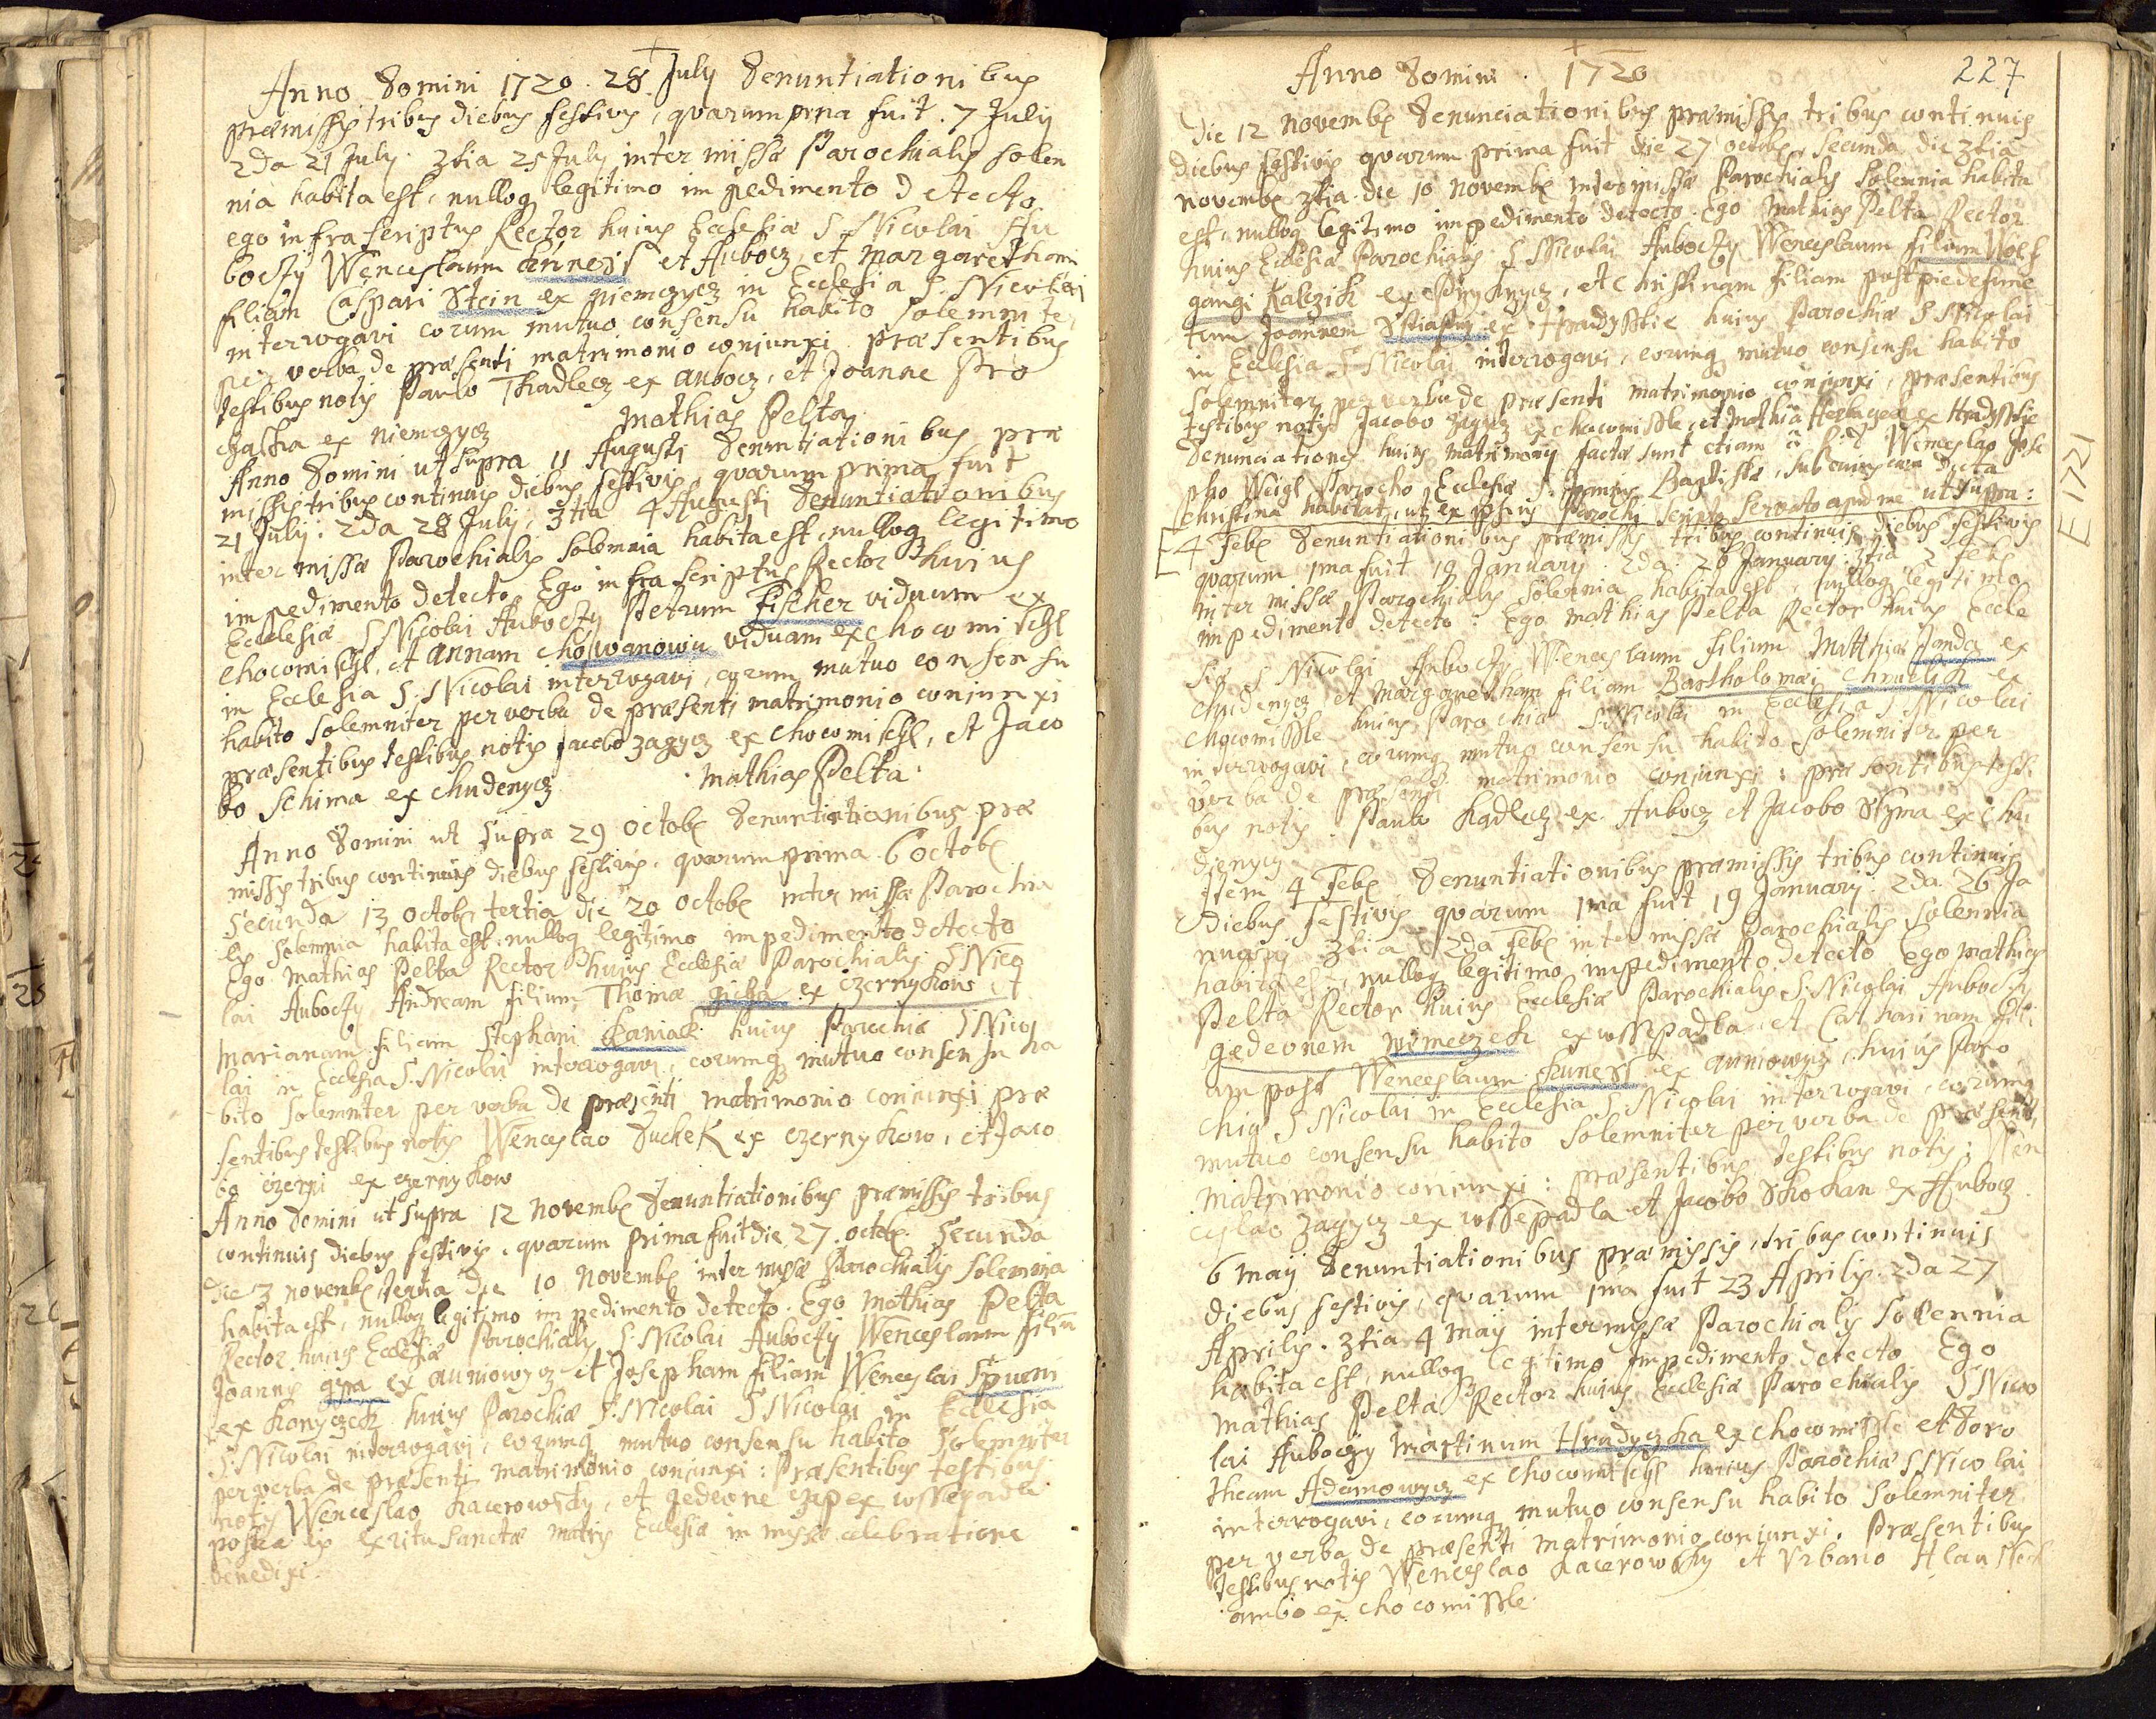 Anno Domini 1720. 28. July Denuntiationibus
præmissis tribus diebus festivis, quarum prna fuit. 7 July
2da 21 July. 3tia 25 July inter missæ Parochialis solem
nia habita est, nulloq legitimo impedimento detecto
ego infra scriptus Rector huius Ecclesiæ S. Nicolai Au
boczy Wenceslaum et Aubocz, et Margaretham
filiam Caspari Stein ex Niemczycz in Ecclesia S. Nicolai
interrogavi eorum mutuo consensu habito solemnite
per verba de præsenti matrimonio conjunxi. præsentibus
testibus notis Paulo Thadlecz ex Aubocz, et Joanne Pro
ex Niemczycz Mathias Pelta
Anno Domini ut supra 11 Augusti Denuntiationibus præ
missis tribus continuis diebus festivis, quarum prima fuit
21 July. 2da 28 July, 3tia 4 Augusti Denuntiationibus
inter missæ Parochialis solemnia habita est, nulloq legitimo
impedimento detecto. Ego infra scriptus Rector huius
Ecclesiæ S Nicolai Auboczy Petrum Fischer viduum ex
Chocomischl, et Annam viduam ex Chocomischl
in Ecclesia S. Nicolai interrogavi, eorum mutuo consensu
habito solemniter per verba de præsenti matrimonio conjunxi
præsentibus testibus notis Jacobo Zagycz ex Chocomischl, et Jaco
bo Schima ex Chudenycz Mathias Pelta
Anno Domini ut supra 29 Octob Denuntiationibus præ
missis tribus continuis diebus festivis, quarum prima 6 Octob
Secunda 13 Octob tertia die 20 Octob inter missæ Parochia
lis solemnia habita est, nulloq legitimo impedimento detecto
Ego Mathias Pelta Rector huius Ecclesiæ Parochialis S Nico
lai Auboczy Andream filium Thomæ ex Czernykow et
Mariannam filiam Stephani Kaniak huius Parochiæ S Nico
lai in Ecclesia S. Nicolai interrogavi, eorumq mutuo consensu ha
bito solemniter per verba de præsenti matrimonio conjunxi præ
sentibus testibus notis Wenceslao Duchek ex Czernykow, et Jaco
bo Czerni ex Czernykow
Anno Domini ut supra 12 Novemb Denuntiationibus præmissis tribus
continuis diebus festivis, quarum prima fuit die 27. Octob. Secunda
die 3 Novemb, tertia die 10 Novemb inter missæ Parochialis solemnia
habita est, nulloq legitimo impedimento detecto. Ego Mathias Pelta
Rector huius Ecclesiæ Parochialis S. Nicolai Auboczy Wenceslaum filiu
Joannis ex Auniowycz et Josepham filiam Wenceslai Spurni
ex Konyczek huius Parochiæ S. Nicolai S Nicolai in Ecclesia
S. Nicolai interrogavi, eorumq mutuo consensu habito solemniter
per verba de præsenti matrimonio conjunxi: Præsentibus testibus
notis Wenceslao Kacerowsky, et Gedeone ex Wssepadla
postea ex ritu Sanctæ matris Ecclesiæ in missæ celebratione
benedixi.
Anno Domini. 1720 227
Die 12 Novemb Denunciationibus præmissis tribus continuis
diebus festivis quarum prima fuit die 27 Octob, secunda die 3tia
Novemb 3tia die 10 Novemb inter missæ Parochialis solemnia habita
est, nulloq legitimo impedimento detecto. Ego Mathias Pelta Rector
huius Ecclesiæ Parochialis S Nicolai Auboczy Wenceslaum filium Wolf
gangi Kalczik ex, et Christinam filiam post pie defunc
tum Joannem ex Hradysstie huius Parochiæ S Nicolai
in Ecclesia S. Nicolai interrogavi, eorumq mutuo consensu habito
solemniter per verba de præsenti matrimonio conjunxi, præsentibus
testibus notis Jacobo Zagycz ex Chocomissle, et Mathia ex Hradysstie
Denunciationes huius matrimony factæ sunt etiam Wenceslao Jose
pho Weigl Parocho Ecclesiæ S. Joannis Baptistæ, sub
Christina habitat, ut ex ipsius Parochi scripto servato apud me ut supra:
E 1721
4 Feb Denuntiationibus præmissis tribus continuis diebus festivis
quarum 1ma fuit 19 January. 2da: 26 January: 3tia 2 Feb
inter missæ Parochialis solemnia habita est, nulloq legitimo
impedimento detecto: Ego Mathias Pelta Rector huius Eccle
siæ S Nicolai Auboczy Wenceslaum filium Matthiæ Janda ex
Chudenycz et Margaretham filiam Bartholomæi Chmelik ex
Chocomissle huius Parochiæ S. Nicolai in Ecclesia S. Nicolai
interrogavi, eorumq mutuo consensu habito solemniter per
verba de præsenti matrimonio conjunxi: præsentibus testi
bus notis. Paulo Kadlecz ex Aubocz et Jacobo Styma ex Chu
dienycz
Item 4 Feb Denuntiationibus præmissis tribus continuis
Diebus Festivis quarum 1ma fuit 19 January. 2da. 26 Ja
nuary 3tia 2da Feb inter missæ Parochialis solemnia
habita est, nulloq legitimo impedimento detecto Ego Mathias
Pelta Rector huius Ecclesiæ Parochialis S. Nicolai Auboczy
Gedeonem Nimeczek ex Wssepadla, et Catharinam fili
am post Wenceslaum ex Auniowycz huius Paro
chiæ S Nicolai in Ecclesia S. Nicolai interrogavi, eorumq
mutuo consensu habito solemniter per verba de præsenti
matrimonio conjunxi: præsentibus testibus notis; Wen
ceslao Zagycz ex Wssepadla et Jacobo ex Aubocz
6 Maij Denuntiationibus præmissis, tribus continuis
diebus festivis, quarum 1ma fuit 23 Aprilis. 2da 27
Aprilis. 3tia 4 May inter missæ Parochialis solennia
habita est, nulloq legitimo Impedimento detecto Ego
Mathias Pelta Rector huius Ecclesiæ Parochialis S Nico
lai Auboczy Martinum Hradyczka ex Chocomissle et Doro
theam Adamowycz ex Chocomischl huius Parochiæ S Nicolai
interrogavi, eorumq mutuo consensu habito solemniter
per verba de præsenti matrimonio conjunxi. Præsentibus
testibus notis Wenceslao Kacerowsky et Urbano
ambo ex Chocomissle.